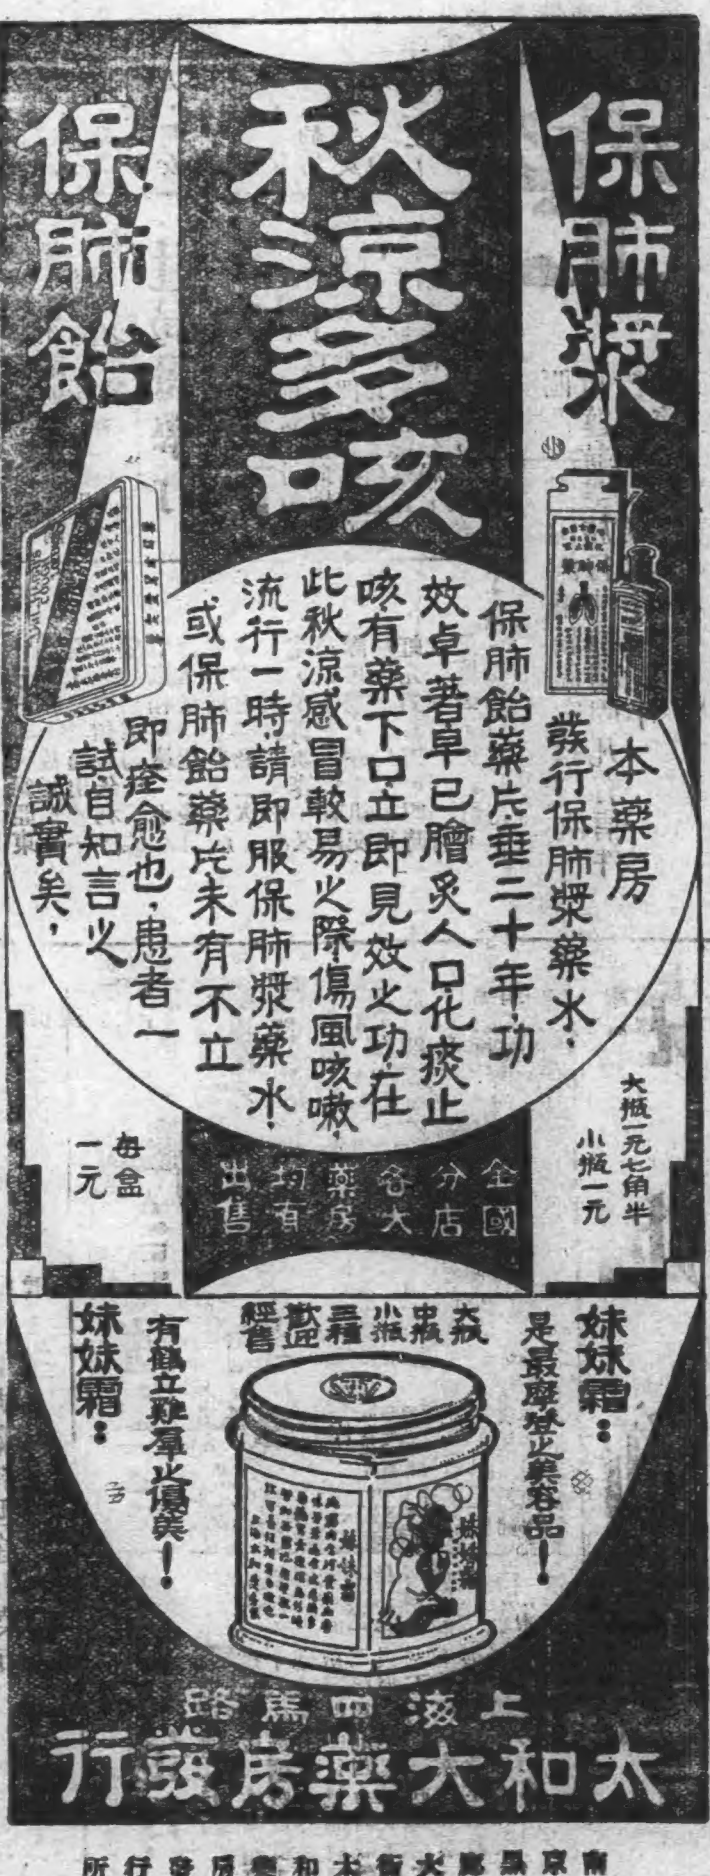 保肺漿
秋涼多咳
保肺飴
本藥房
發行保肺漿藥水、
保肺飴藥片、垂二十年、功
效卓著早已膾炙人口化痰止
咳、有藥下口立即見效之功、在
此秋涼感冒較易之際、傷風咳嗽、
流行一時、請即服保肺漿藥水、
或保肺飴藥片、未有不立
即痊愈也、患者一
試、自知言之
誠實矣、
保肺漿
大瓶一元七角半
小瓶一元
每盒
一元
全國
分店
各大
藥房
均有
出售
妹妹霜：
是最摩登之美容品！
大瓶
中瓶
小瓶
三種
歡迎
經售
有鶴立雞羣之優美！
妹妹霜：
妹妹霜
妹妹霜
上海四馬路
太和大藥房發行